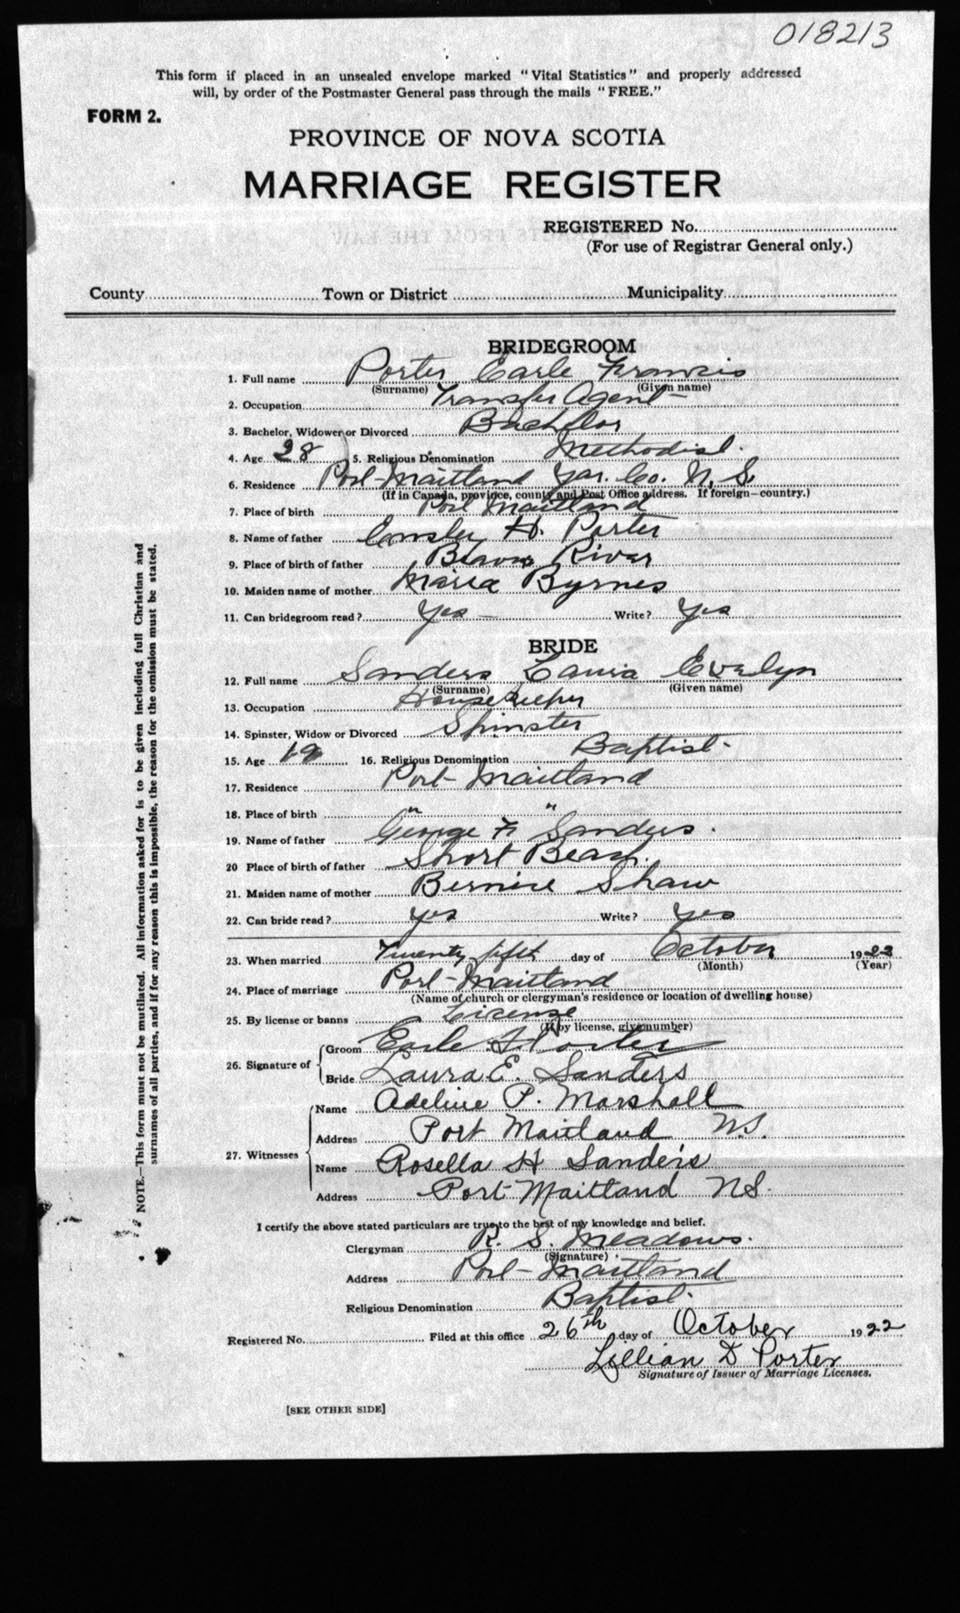 018213
This form if placed in an unsealed envelope marked "Vital Statistics" and properly addressed
will, by order of the Postmaster General pass through the mails "FREE."
FORM 2.
PROVINCE OF NOVA SCOTIA
MARRIAGE REGISTER
REGISTERED No.
(For use of Registrar General only.)
County Town or District Municipality
BRIDEGROOM
1. Full name Porter Earle Francis
(Surname) (Given name)
2. Occupation Transfer Agent
3. Bachelor, Widower or Divorced Bachelor
4. Age 28 5. Religious Denomination Methodist.
6. Residence Port Maitland Yar. Co. N. S.
(If in Canada, province, county and Post Office address. If foreign—country.)
7. Place of birth Port Maitland
8. Name of father H. Porter
9. Place of birth of father Beaver River
10. Maiden name of mother Maria Byrnes
11. Can bridegroom read? Yes Write? Yes
BRIDE
12. Full name Sanders Laura Evelyn
(Surname) (Given name)
13. Occupation Housekeeper
14. Spinster, Widow or Divorced Spinster
15. Age 16. Religious Denomination Baptist
17. Residence Port Maitland
18. Place of birth " "
19. Name of father George F. Sanders.
20 Place of birth of father Short Beach.
21. Maiden name of mother Bernice Shaw
22. Can bride read? Yes Write? Yes
23. When married Twenty fifth day of October 1922
(Month) (Year)
24. Place of marriage Port Maitland
(Name of church or clergyman's residence or location of dwelling house)
25. By license or banns License
(If by license, give number)
26. Signature of Groom Earle F Porter
Bride Laura E. Sanders
27. Witnesses Name Adeline P. Marshall
Address Port Maitland N.S.
Name Rosella H Sanders
Address Port Maitland NS.
I certify the above stated particulars are true to the best of my knowledge and belief.
Clergyman R. S. Meadows.
(Signature)
Address Port Maitland
Religious Denomination Baptist.
Registered No. Filed at this office 26th day of October 1922
Lillian D Porter
Signature of Issuer of Marriage Licenses.
[SEE OTHER SIDE]
NOTE.—This form must not be mutilated. All information asked for is to be given including full Christian and
surnames of all parties, and if for any reason this is impossible, the reason for the omission must be stated.